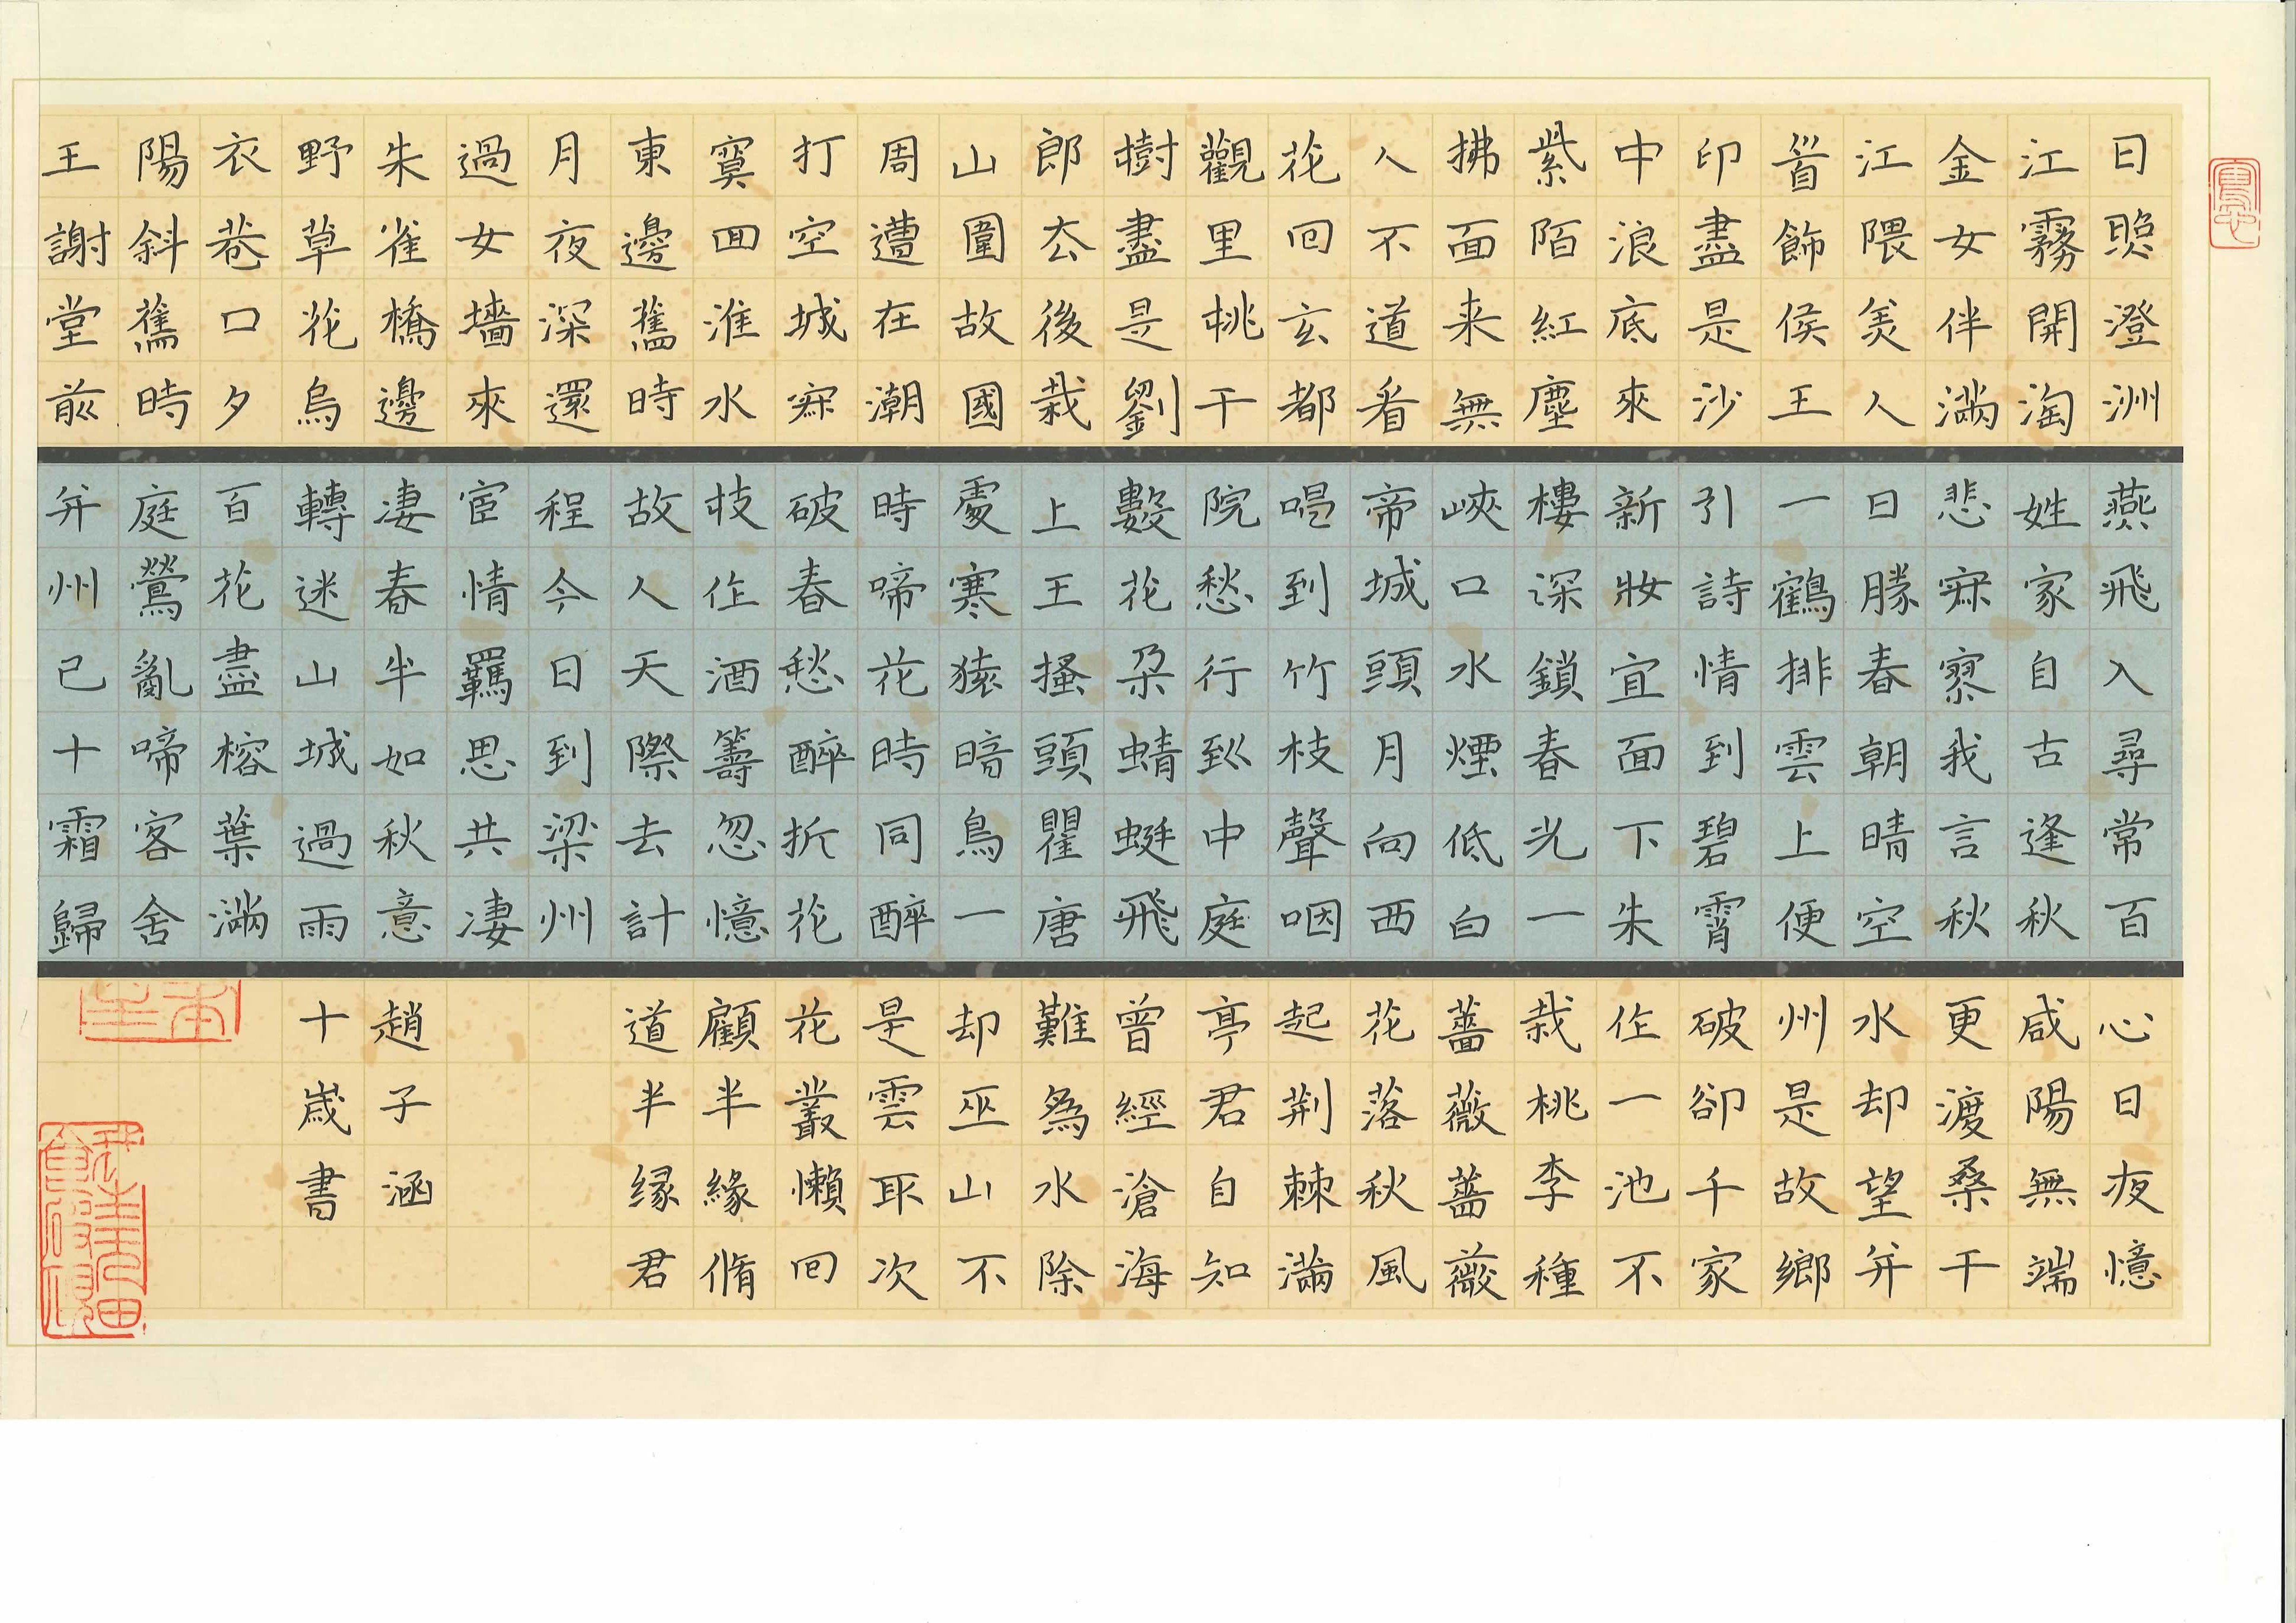 日照澄洲
江霧開淘
金女伴滿
江隈美人
首飾侯王
印盡是沙
中浪底來
紫陌紅塵
拂面来無
人不道看
花回玄都
觀里桃千
樹盡是劉
郎去後栽
山圍故國
周遭在潮
打空城寂
寞回淮水
東邊舊時
月夜深還
過女墻來
朱雀橋邊
野草花烏
衣巷口夕
陽斜舊時
王謝堂前
燕飛入尋常百
姓家自古逢秋
悲寂寥我言秋
日勝春朝晴空
一鶴排雲上便
引詩情到碧霄
新妝宜面下朱
樓深鎖春光一
峽口水煙低白
帝城頭月向西
唱到竹枝聲咽
院愁行到中庭
數花朵蜻蜓飛
上王搔頭瞿唐
處寒猿暗鳥一
時啼花時同醉
破春愁醉折花
枝作酒籌忽憶
故人天際去計
程今日到梁州
宦情羈思共凄
凄春半如秋意
轉迷山城過雨
百花盡榕葉滿
庭鶯亂啼客舍
并州已十霜歸
心日夜憶
咸陽無端
更渡桑干
水却望并
州是故鄉
破卻千家
作一池不
栽桃李種
薔薇薔薇
花落秋風
起荆棘滿
亭君自知
曾經滄海
難為水除
却巫山不
是雲取次
花叢懶回
顧半緣脩
道半缘君
趙子涵
十歲書